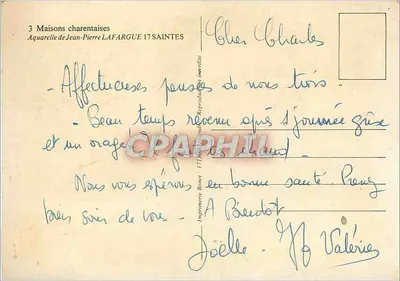 3 Maisons charentaises
Aquarelle de Jean-Pierre LAFARGUE 17 SAINTES
Cher Charles
- Affectueuses pensées de nous trois.
- Beau temps revenu après 1 journée grise
et un orage. chaud.
Nous vous espérons en bonne santé. Prenez
bien soin de vous. A Bientôt
Joëlle. Valérie
CPARHIL.com
Imprimerie Reproduction interdite